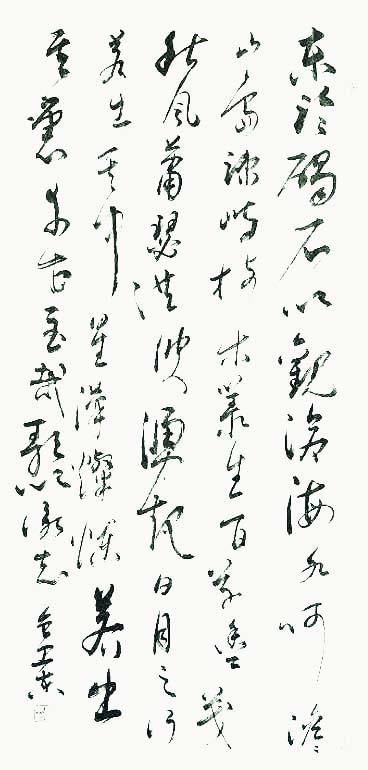 東臨碣石以觀滄海水何澹〻
山島竦峙樹木叢生百草豐茂
秋風蕭瑟洪波湧起日月之行
若出其中星漢燦爛若出
其裏幸甚至哉歌以詠志